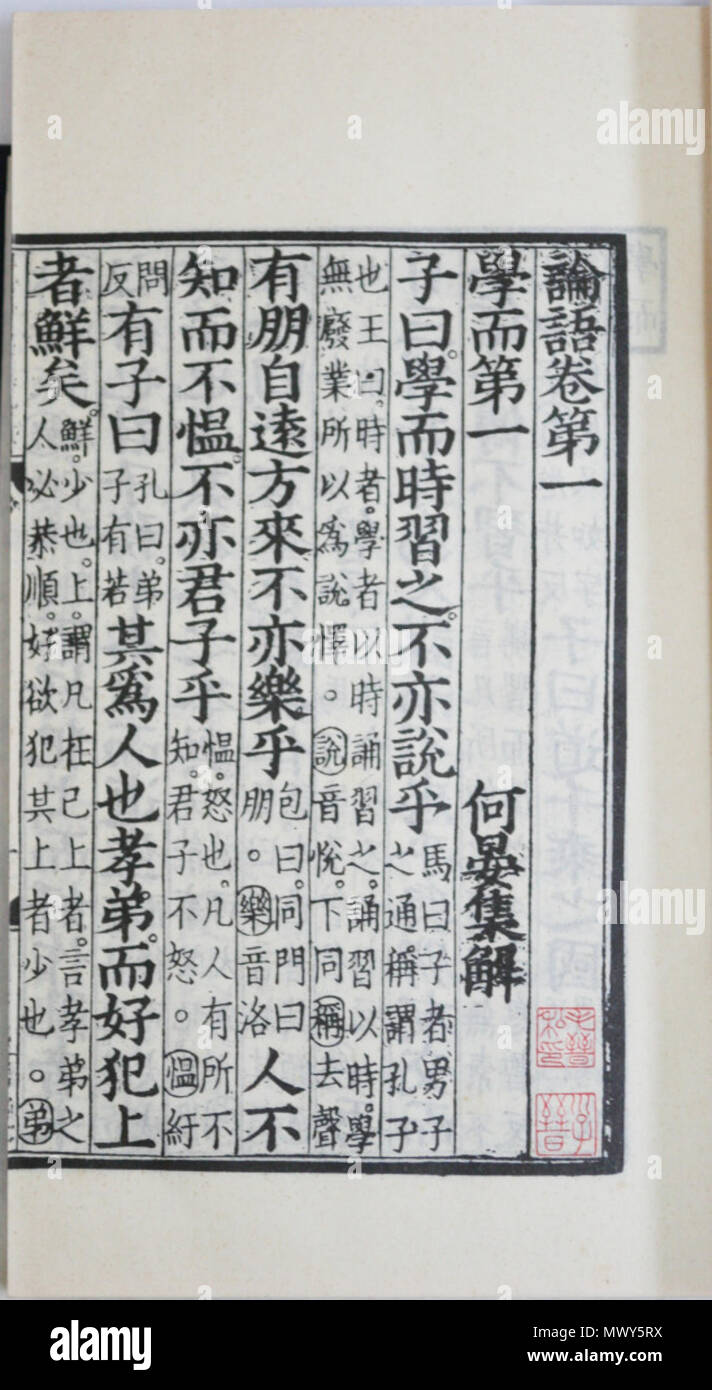 論語卷第一
學而第一 何晏集解
子曰。學而時習之。不亦說乎 馬曰子者男子之通稱。謂孔子
也王曰。時者。學者以時誦習之。誦習以時。學
無廢業所以爲說懌。說音悅。下同稱去聲
有朋自遠方來不亦樂乎 包曰。同門曰朋。樂音洛 人不
知而不慍。不亦君子乎 慍。怒也。凡人有所不知。君子不怒。慍紆
問反 有子曰 孔曰。弟子有若 其爲人也孝弟。而好犯上
者鮮矣。鮮。少也。上。謂凡在己上者。言孝弟之人必恭順。好欲犯其上者少也。弟
毛晉私印
子晉
alamy
Image ID: MWY5RX
www.alamy.com